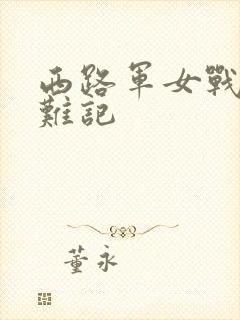 西路軍女戰
難記
董永